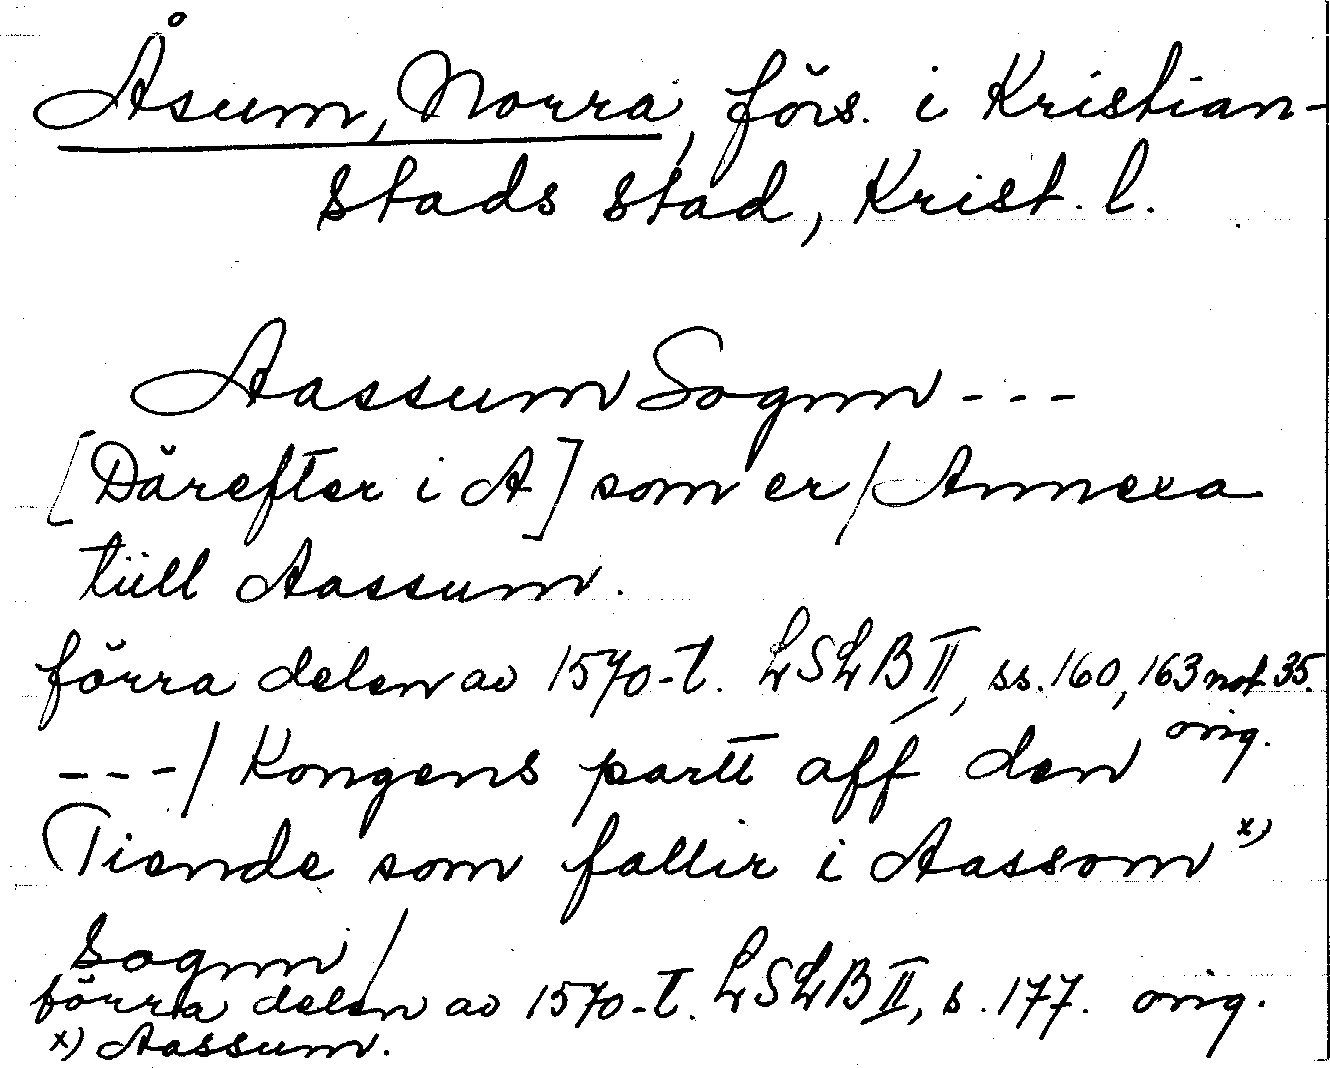 Åsum, Norra, förs. i Kristian-
stads stad, Krist. l.
Aassum Sognn - - -
[Därefter i A] som er / Annexa
tüll Aassum.
förra delen av 1570-t. LSLB II, ss. 160, 163 not 35. orig.
- - - / Kongens partt aff den
Tiende som fallir i Aassom x)
sognn /
förra delen av 1570-t. LSLB II, s. 177. orig.
x) Aassum.